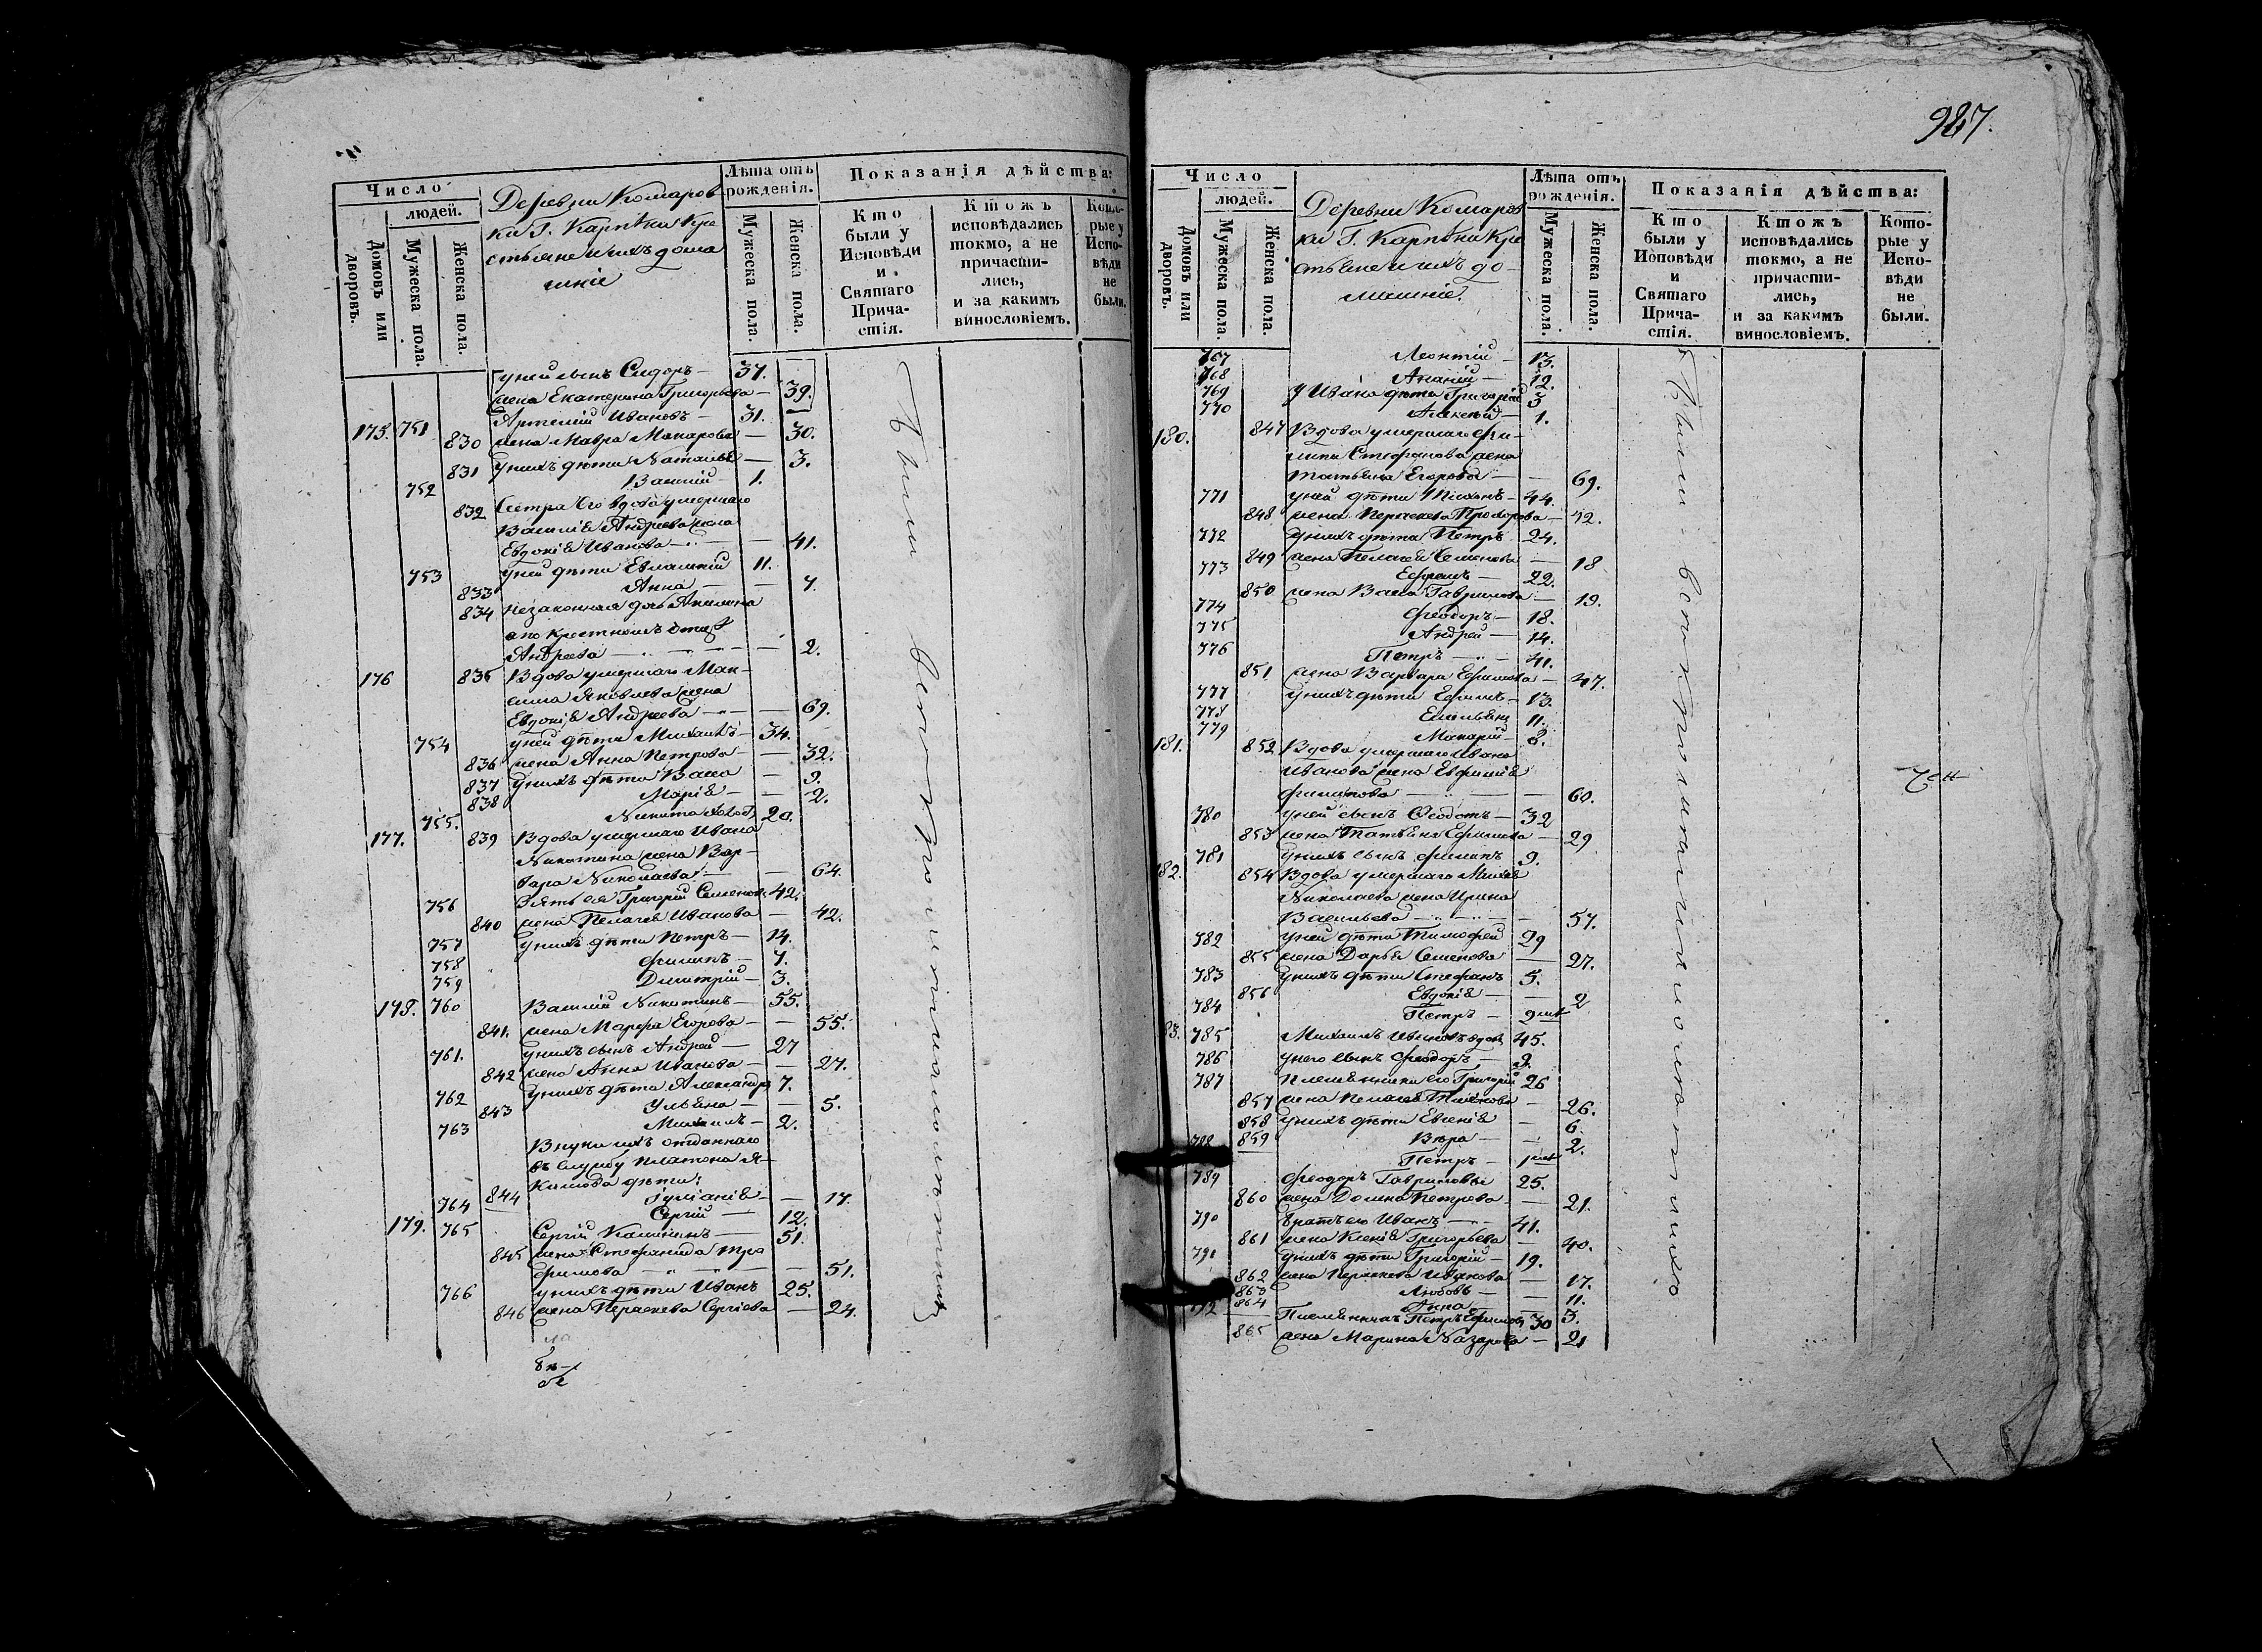 Число
людей.
Домовъ или дворовъ.
Мужеска пола.
Женска пола.
Деревни Комаров
ки Г. Карпѣки Кре
стьяне и ихъ дома
шніе
Лѣта отъ рожденія.
Мужеска пола.
Женска пола.
Показанія дѣйства:
Кто были у Исповѣди и Святаго Прича-стія.
Ктожъ исповѣдались токмо, а не причасти-лись, и за какимъ винословіемъ.
Кото-рые у Испо-вѣди не были.
у ней сынъ Сидоръ — 37.
жена Екатерина Григорьева — 39.
175. 751 Артемій Ивановъ — 31.
830 жена Мавра Макарова — 30.
831 у нихъ дѣти Наталья — 3.
752 Василій — 1.
832 Сестра его вдова умершаго
Василія Андреева жена
Евдокія Иванова — 41.
753 у ней дѣти Евлампій 11.
833 Анна — 7.
834 незаконная дочь Акилина
а по крестномъ отцѣ
Андреева — 2.
176 835 Вдова умершаго Мак-
сима Яковлева жена
Евдокія Андреева — 69.
754 у ней дѣти Михаилъ — 34.
836 жена Анна Петрова — 32.
837 у нихъ дѣти Васса — 9.
838 Марія — 2.
755. Никита холост 20.
177. 839 Вдова умершаго Ивана
Никитина жена Вар-
вара Николаева — 64.
756 Зять ея Григорій Семенов. 42.
840 жена Пелагея Иванова — 42.
757 у нихъ дѣти Петръ — 14.
758 Филипъ — 7.
759 Димитрій — 3.
178. 760 Василій Никитинъ — 55.
841. жена Марфа Егорова — 55.
761. у нихъ сынъ Андрей — 27
842 жена Анна Иванова — 27.
762 у нихъ дѣти Александр 7.
843 Ульяна — 5.
763 Михаилъ — 2.
Внуки ихъ отданнаго
въ службу Платона Я-
кимова дѣти:
844 Іуліанія — 17.
764 Сергій — 12.
179. 765 Сергій Калининъ — 51.
845 жена Стефанида Тро
фимова — 51.
766 у нихъ дѣти Иванъ 25.
846 жена Параскева Сергіева — 24.
987.
Число
людей.
Домовъ или дворовъ.
Мужеска пола.
Женска пола.
Деревни Комаров
ки Г. Карпѣки Кре
стьяне и ихъ до-
машніе.
Лѣта отъ рожденія.
Мужеска пола.
Женска пола.
Показанія дѣйства:
Кто были у Исповѣди и Святаго Прича-стія.
Ктожъ исповѣдались токмо, а не причасти-лись, и за какимъ винословіемъ.
Кото-рые у Испо-вѣди не были.
767 Леонтій — 13.
768 Ананій — 12.
769 У Ивана дѣти Григорій 3
770 Алексѣй — 1.
180. 847 Вдова умершаго Фи-
липа Стефанова жена
Татьяна Егорова — 69.
771 у ней дѣти — 44.
848 жена Параскева Прохорова — 42.
772 у нихъ дѣти Петръ 24.
849 жена Пелагея Семенова — 18
773 Ефремъ — 22.
850 жена Васса Гаврилова — 19.
774 Феодоръ — 18.
775 Андрей — 14.
776 Петръ — 41.
851 жена Варвара Ефимова — 47.
777 у нихъ дѣти Ефимъ — 13.
778 Емельянъ 11.
779 Макарій — 8.
181. 852 Вдова умершаго Ивана
Иванова жена Евфимія
Филипова — 60.
780 у ней сынъ Феодотъ — 32
853 жена Татьяна Ефимова — 29
781 у нихъ сынъ Филипъ 9.
182. 854 Вдова умершаго
Николаева жена Ирина
Васильева — 57.
782 у ней дѣти Тимофей 29
855 жена Дарья Семенова — 27.
783 у нихъ дѣти Стефанъ 5.
856 Евдокія — 2
784 Петръ —
83. 785 Михаилъ Ивановъ вдов. 45.
786 у него сынъ Феодоръ — 9.
787 Племянники его Григорій 26
857 жена Пелагея — 26.
858 у нихъ дѣти Евгенія — 6.
859 Вѣра — 2.
788 Петръ —
789 Феодоръ Гавриловъ 25.
860 жена Домна Петрова — 21.
790 братъ его Иванъ — 41.
861 жена Ксенія Григорьева — 40.
791 у нихъ дѣти Григорій — 19.
862 жена Параскева Иванова — 17.
863 Любовь — 11.
864 Анна — 3.
792 Племянникъ Петръ Ефимов 30
865 жена Марина Назарова — 21